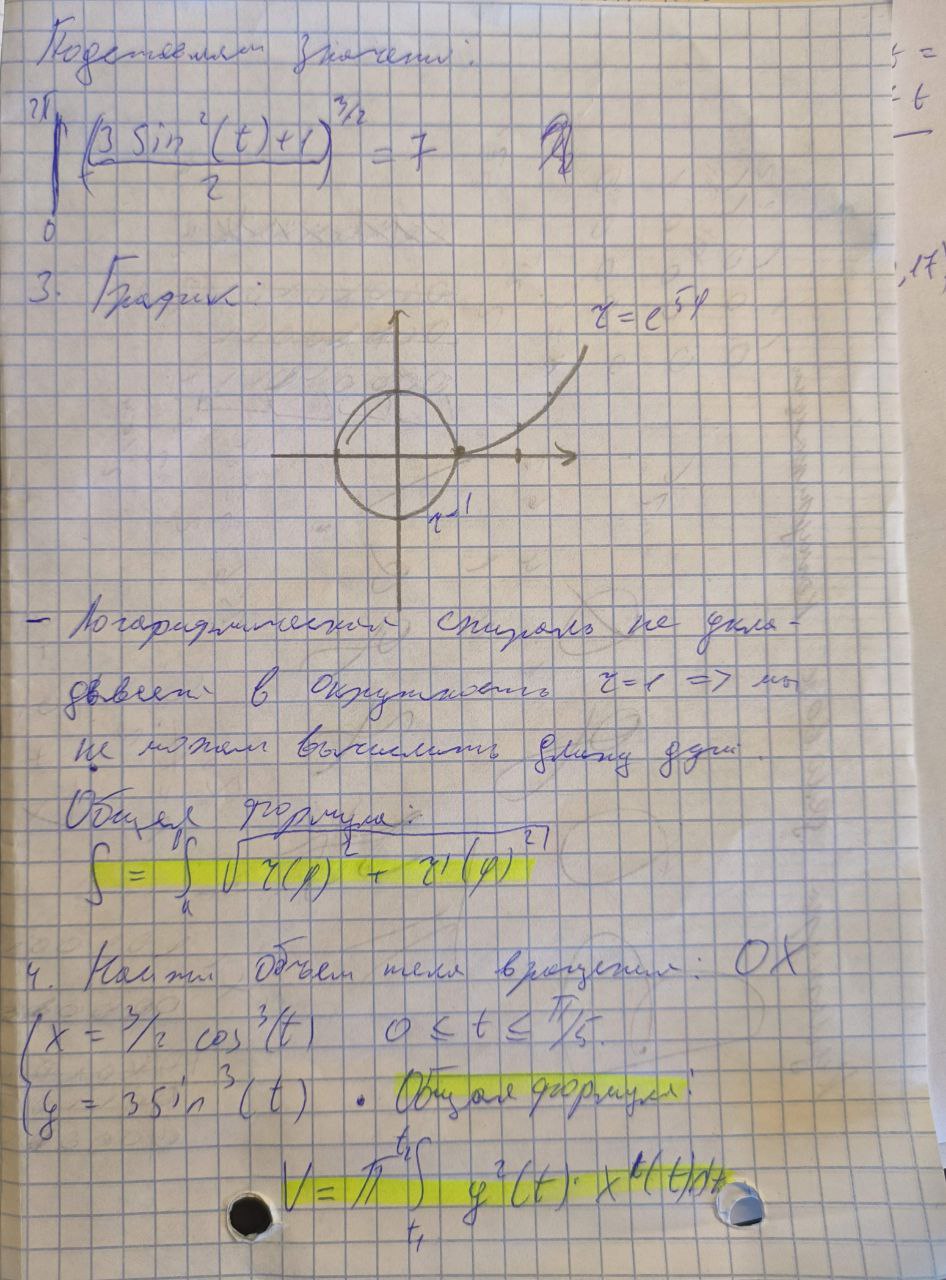 Подставляем значения:
2π
∫ (3 sin²(t)+1 / 2)^3/2 = 7
0
3. График:
r = e^5φ
r=1
- Логарифмическая спираль не укла-
дывает в окружность r=1 => мы
не можем вычислить длину дуги.
Общая формула:
∫ = ∫ √ r(φ)² + r'(φ)²
4. Найти объем тела вращения: OX
{ x = 3/2 cos³(t) 0 ≤ t ≤ π/5.
{ y = 3 sin³(t) . Общая формула:
V = π ∫ y²(t) · x'(t)dt
t₂
t₁
5 =
t
,17)